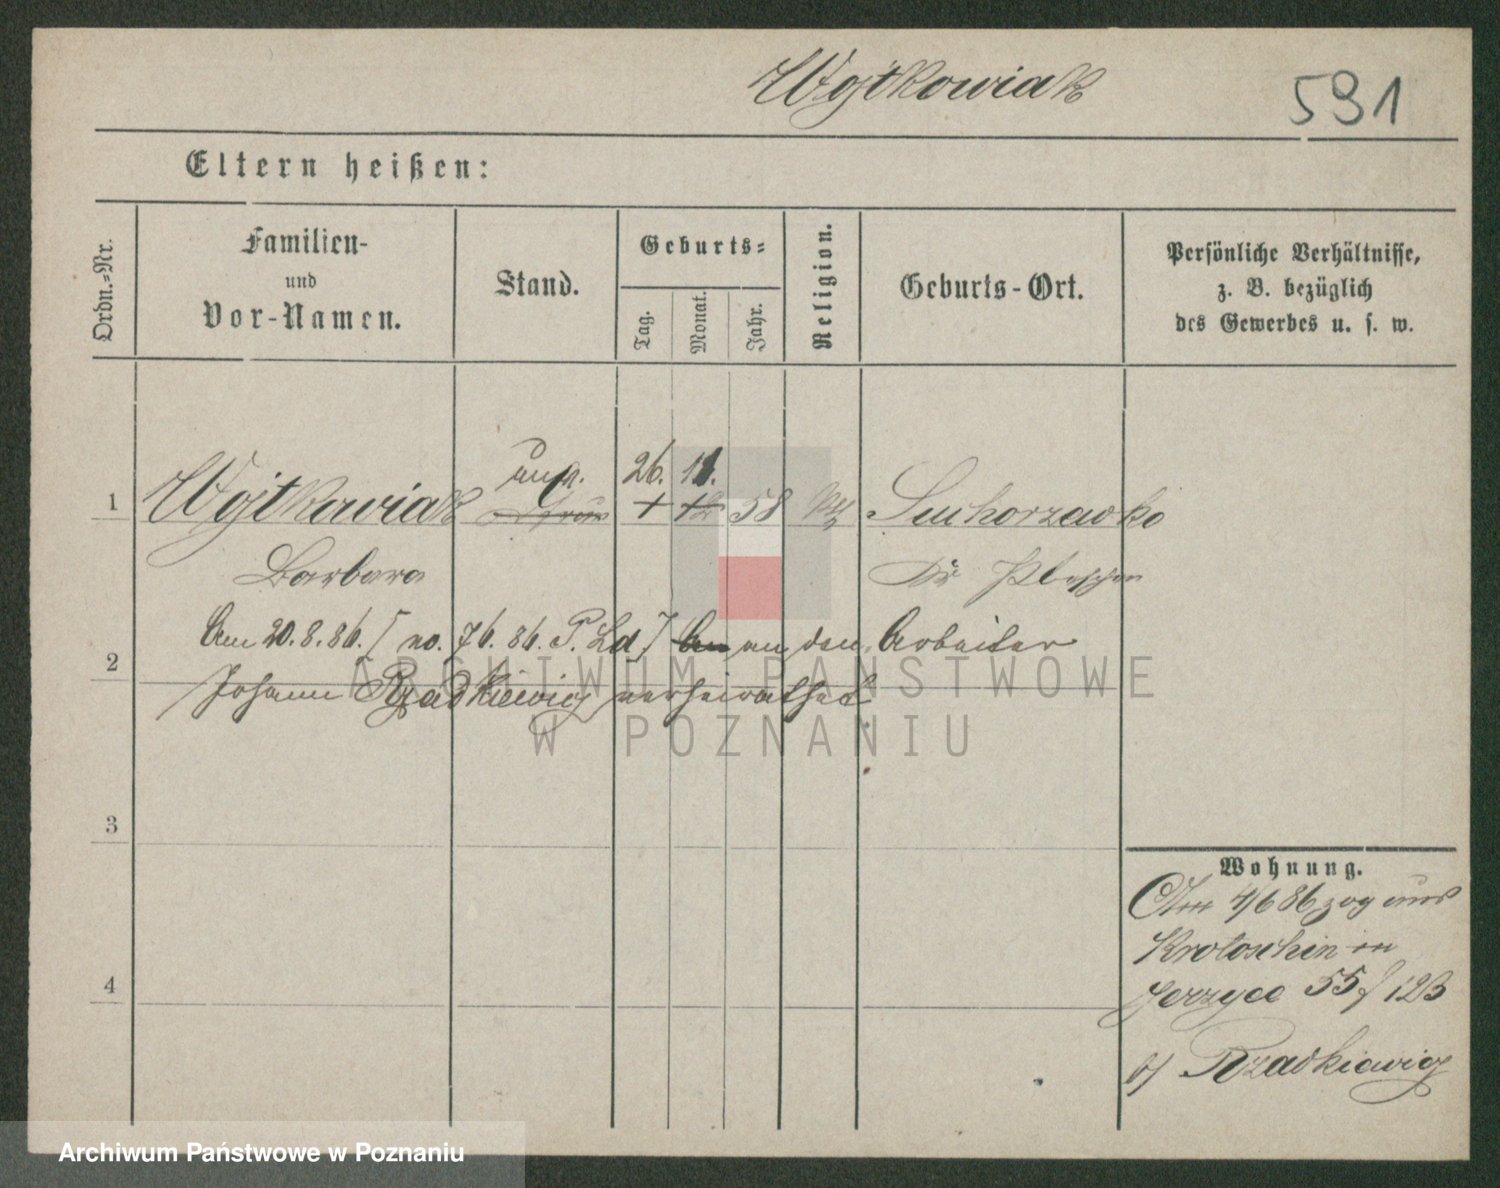 Wojtkowiak 591
Eltern heißen:
Ordn.-Nr.
Familien-
und
Vor-Namen.
Stand.
Geburts-
Tag.
Monat.
Jahr.
Religion.
Geburts-Ort.
Persönliche Verhältnisse,
z. B. bezüglich
des Gewerbes u. s. w.
26. 11.
1 Wojtkowiak 58 Suchorzewko
Barbara Kr Pleschen
Am 20.8.86. an den Arbeiter
2
Johann Rzadkiewicz verheirathet
ARCHIWUM PAŃSTWOWE
W POZNANIU
3
4
Wohnung.
Am 4/6 86 zog aus
Krotoschin in
Jerzyce 55 / 123
b/ Rzadkiewicz
Archiwum Państwowe w Poznaniu